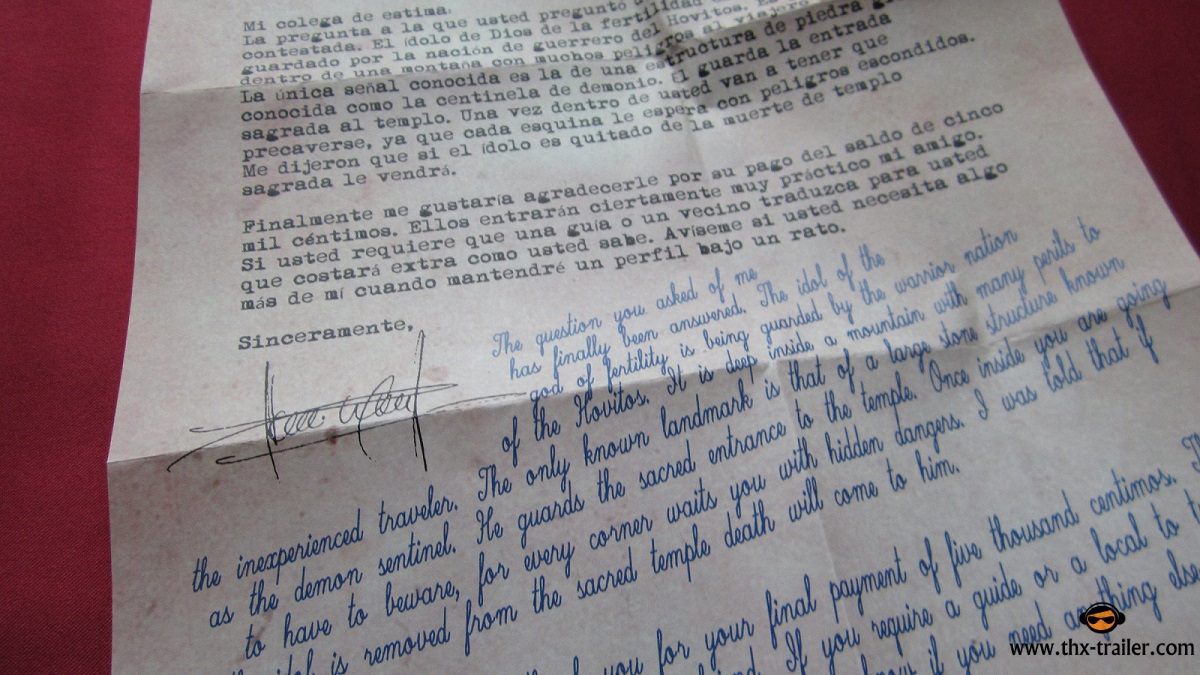 Mi colega de estima.
La pregunta a la que usted preguntó
contestada. El ídolo de Dios de la fertilidad
guardado por la nación de guerrero del Hovitos.
dentro de una montaña con muchos peligros al viajero
La única señal conocida es la de una estructura de piedra
conocida como la centinela de demonio. El guarda la entrada
sagrada al templo. Una vez dentro de usted van a tener que
precaverse, ya que cada esquina le espera con peligros escondidos.
Me dijeron que si el ídolo es quitado de la muerte de templo
sagrada le vendrá.
Finalmente me gustaría agradecerle por su pago del saldo de cinco
mil céntimos. Ellos entrarán ciertamente muy práctico mi amigo.
Si usted requiere que una guía o un vecino traduzca para usted
que costará extra como usted sabe. Avíseme si usted necesita algo
más de mí cuando mantendré un perfil bajo un rato.
Sinceramente,
The question you asked of me
has finally been answered. The idol of the
god of fertility is being guarded by the warrior nation
of the Hovitos. It is deep inside a mountain with many perils to
the inexperienced traveler. The only known landmark is that of a large stone structure known
as the demon sentinel. He guards the sacred entrance to the temple. Once inside you are going
to have to beware, for every corner waits you with hidden dangers. I was told that if
idol is removed from the sacred temple death will come to him.
you for your final payment of five thousand centimos.
If you require a guide or a local to
know if you need anything else
www.thx-trailer.com